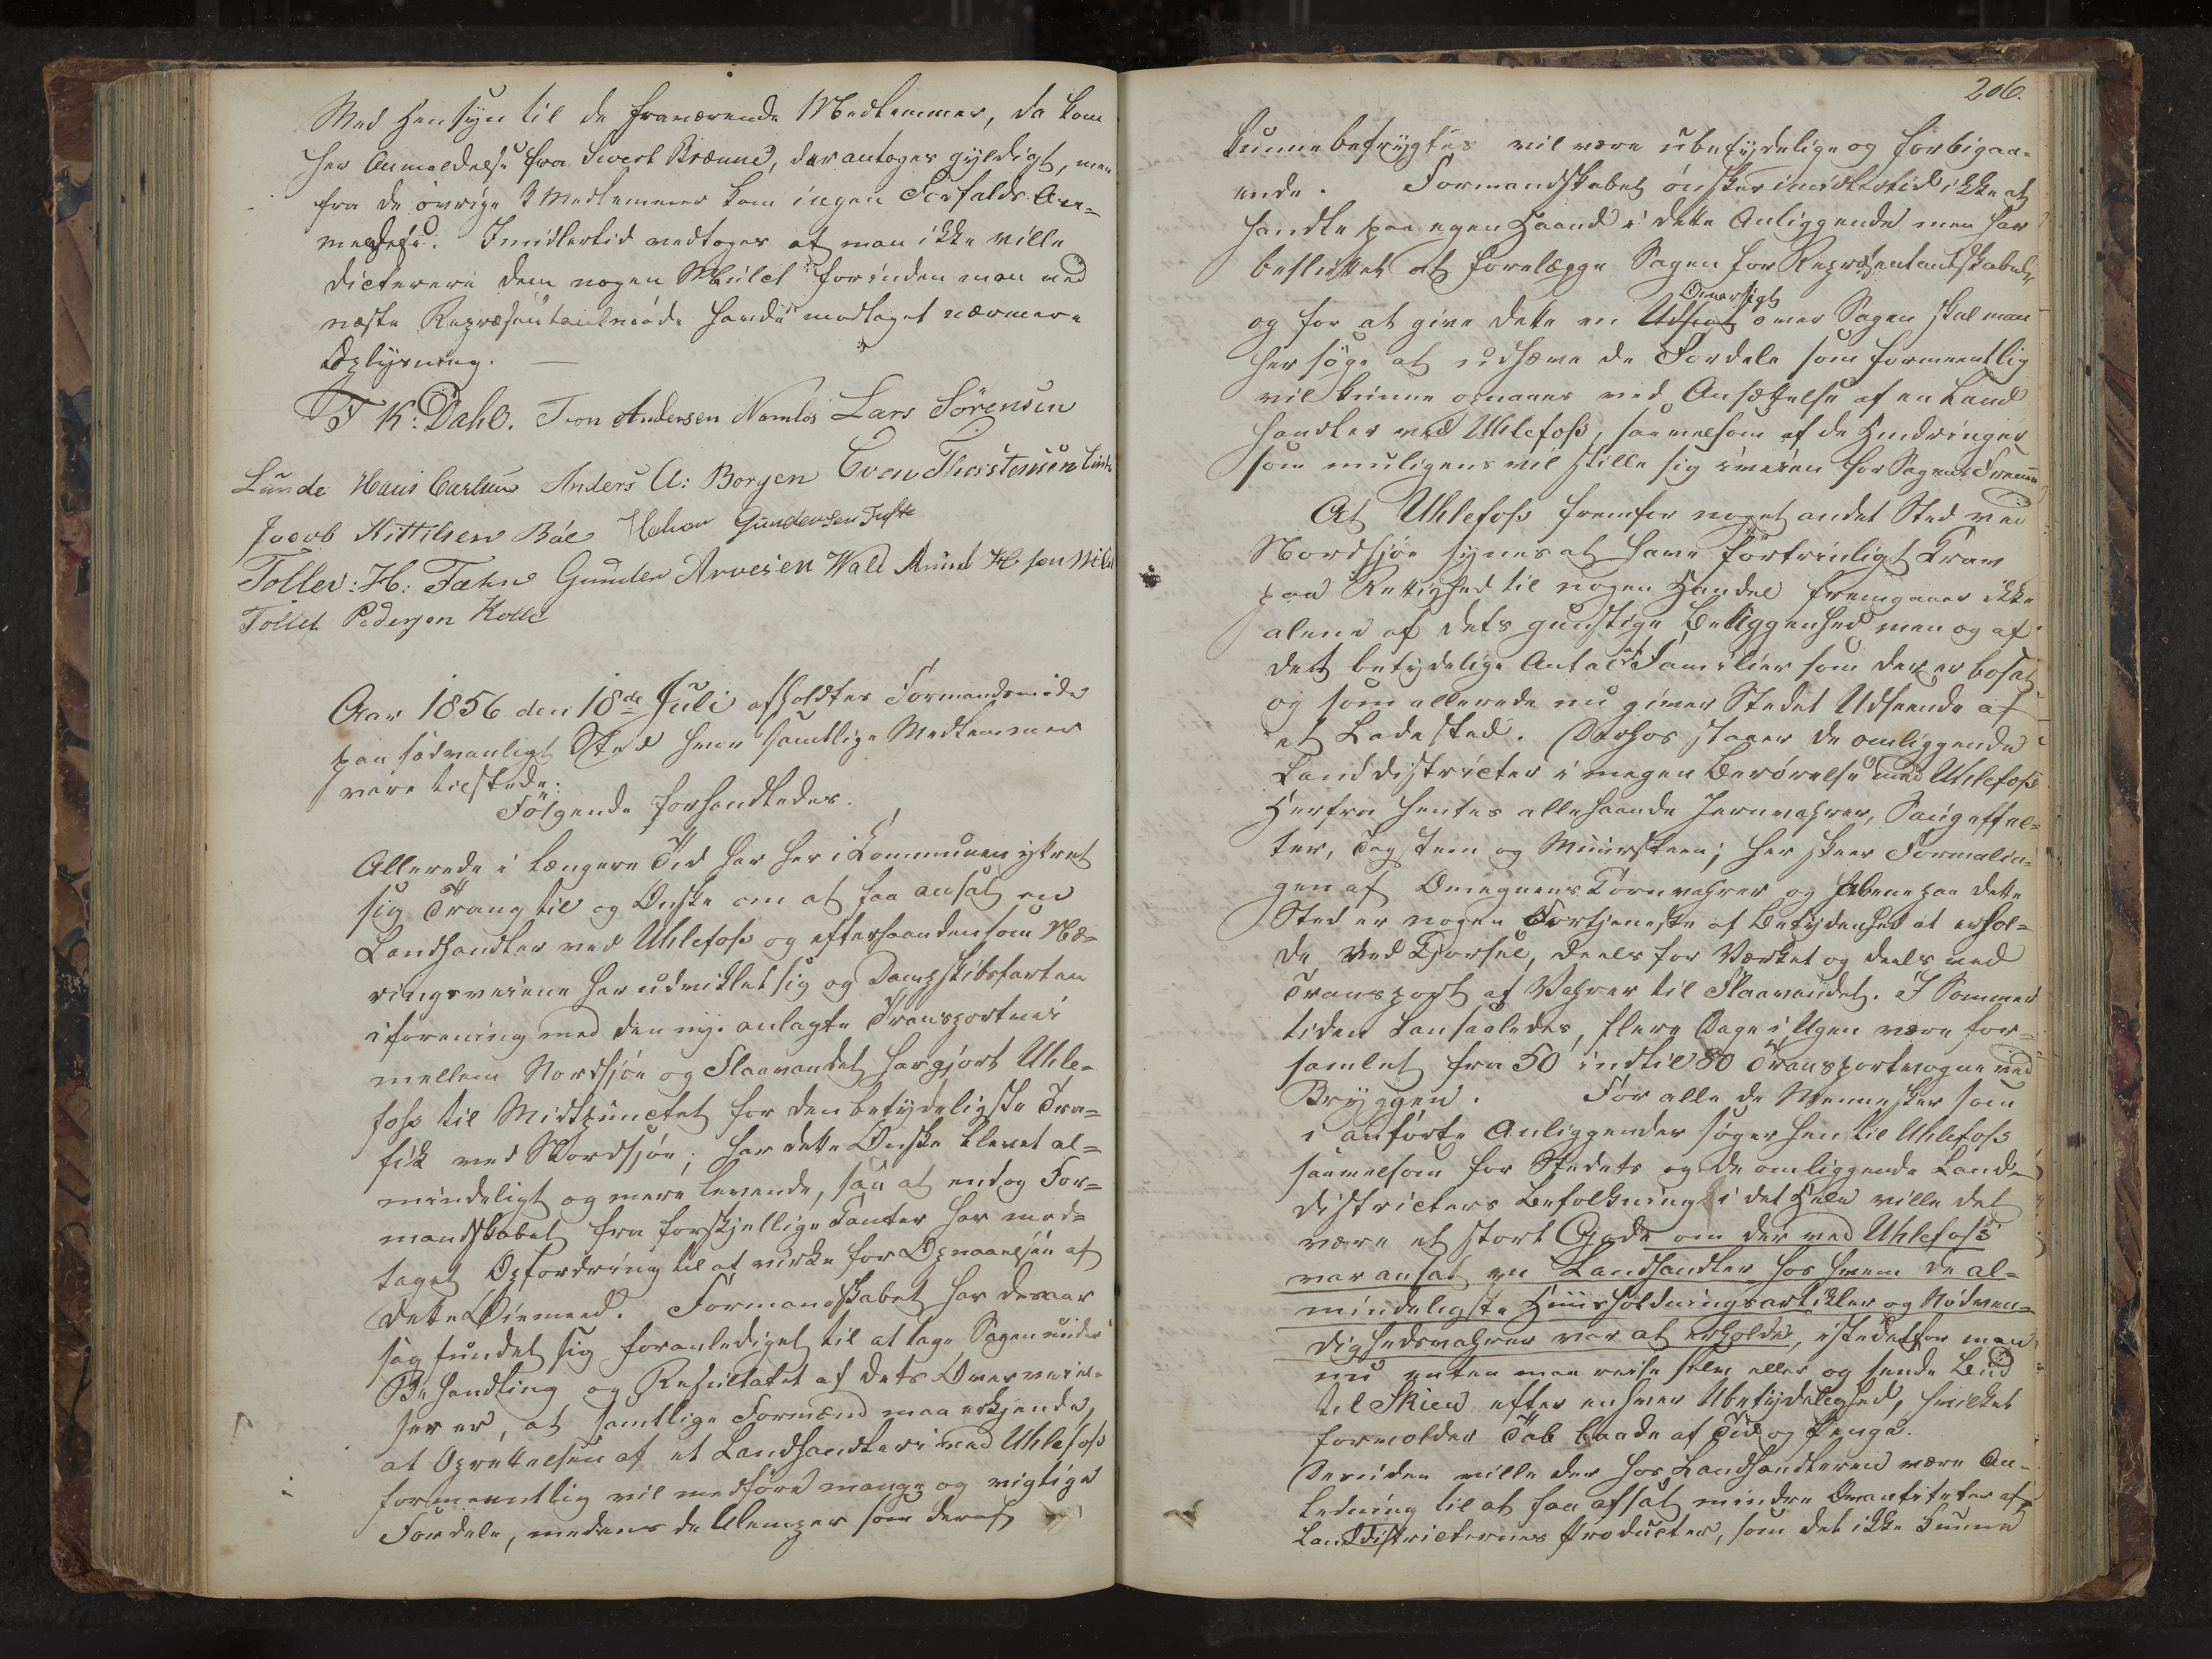 Med Hensyn til de fraværende Medlemmer, da kom
her Anmeldelse fra Sivert Brænne, der antoges gyldigt, men
fra de øvrige 3 Medlemmer kom ingen Forfalds An-
meldelse. Imidlertid vedtoges at man ikke ville
dicterere dem nogen Mulct forinden man ved
næste Repræsentantmøde havde modtaget nærmere
Oplysning. —
T K: Dahl. Tron Andersen Namløs Lars Sörensen
Lunde Hans Carlsen Anders A: Borgen Even Thorstensen Lind
Jacob Kittilsen Bøe Halvor Gundersen Tufte
Tollev: H: Fæhn Gunder Arvesen Wald Amund H:sen
Tollef Pedersen Kolle
Aar 1856 den 18de Juli afholdtes Formandsmöde
paa sædvanligt Sted hvor samtlige Medlemmer
vare tilstede.
Fölgende forhandledes.
Allerede i længere Tid har her i Kommunen ytret
sig Trang til og Ønske om at faa ansat en
Landhandler ved Uhlefoss og efterhaanden som Næ-
ringsveiene har udviklet sig og Dampskibsfarten
iforening med den nye anlagte Transportvei
mellem Nordsjöe og Flaavandet har gjort Uhle-
foss til Midtpunctet for den betydeligste Tra-
fik ved Nordsjöe; har dette Ønske blevet al-
mindeligt og mere levende, saa at endog For-
mandskabet fra forskjellige Kanter har mod-
taget Opfordring til at virke for Opnaaelsen af
dette Øiemeed. Formandskabet har desaar-
sag fundet sig foranlediget til at tage Sagen under
Behandling og Resultatet af dets Overveiel-
ser er, at samtlige Formænd maa erkjende,
at Oprettelsen af et Landhandleri ved Uhlefoss
formeentlig vil medföre mange og vigtige
Fordele, medens de Ulemper som deraf
206.
kunne befrygtes vil være ubetydelige og forbigaa-
ende. Formandskabet önsker imidlertid ikke at
handle paa egen Haand i dette Anliggende men har
besluttet at forelægge Sagen for Repræsentantskabet,
Oversigt
og for at give dette en Udsigt over Sagen skal man
her söge at udhæve de Fordele som formeentlig
vil kunne opnaaes ved Ansættelse af en Land
handler ved Uhlefoss, saavelsom af de Hindringer
som muligens vil stille sig iveien for Sagens Fremme
At Uhlefoss fremfor noget andet Sted ved
Nordsjöe synes at have fortrinligt Krav
paa Rettighed til nogen Handel fremgaaer ikke
alene af dets gunstige Beliggenhed men og af
det betydelige Antal af Familier som der er bosat
og som allerede nu giver Stedet Udseende af
et Ladested. Derhos staaer de omliggende
Landdistricter i megen Berörelse med Uhlefoss
Herfra hentes allehaande Jernvahrer, Saugeffec-
ter, Tagsteen og Muursteen; her skeer Formalin-
gen af Omegnens Kornvahrer og alene paa dette
Sted er nogen Fortjeneste af Betydenhed at erhol-
de ved Kjørsel, deels for Værket og deels ved
Transport af Vahrer til Flaavandet. I Sommer
tiden kan saaledes, flere Dage i Ugen være for-
samlet fra 50 indtil 80 Transportvogne ved
Bryggen. For alle de Mennesker som
i anførte Anliggender söger hen til Uhlefoss
saavelsom for Stedets og de omliggende Land-
districters Befolkning i det Hele ville det
være et stort Gode om der ved Uhlefoss
var ansat en Landhandler hos hvem de al-
mindeligste Huusholdningsartikler og Nödven-
dighedsvahrer var at erholde, istedetfor man
nu enten maa reise selv eller og sende Bud
til Skien efter enhver Ubetydelighed, hvilket
forvolder Tab baade af Tid og Penge.
Desuden ville der hos Landhandleren være An-
ledning til at faa afsat mindre Qvantiteter af
Landdistricternes Producter, som det ikke kunne